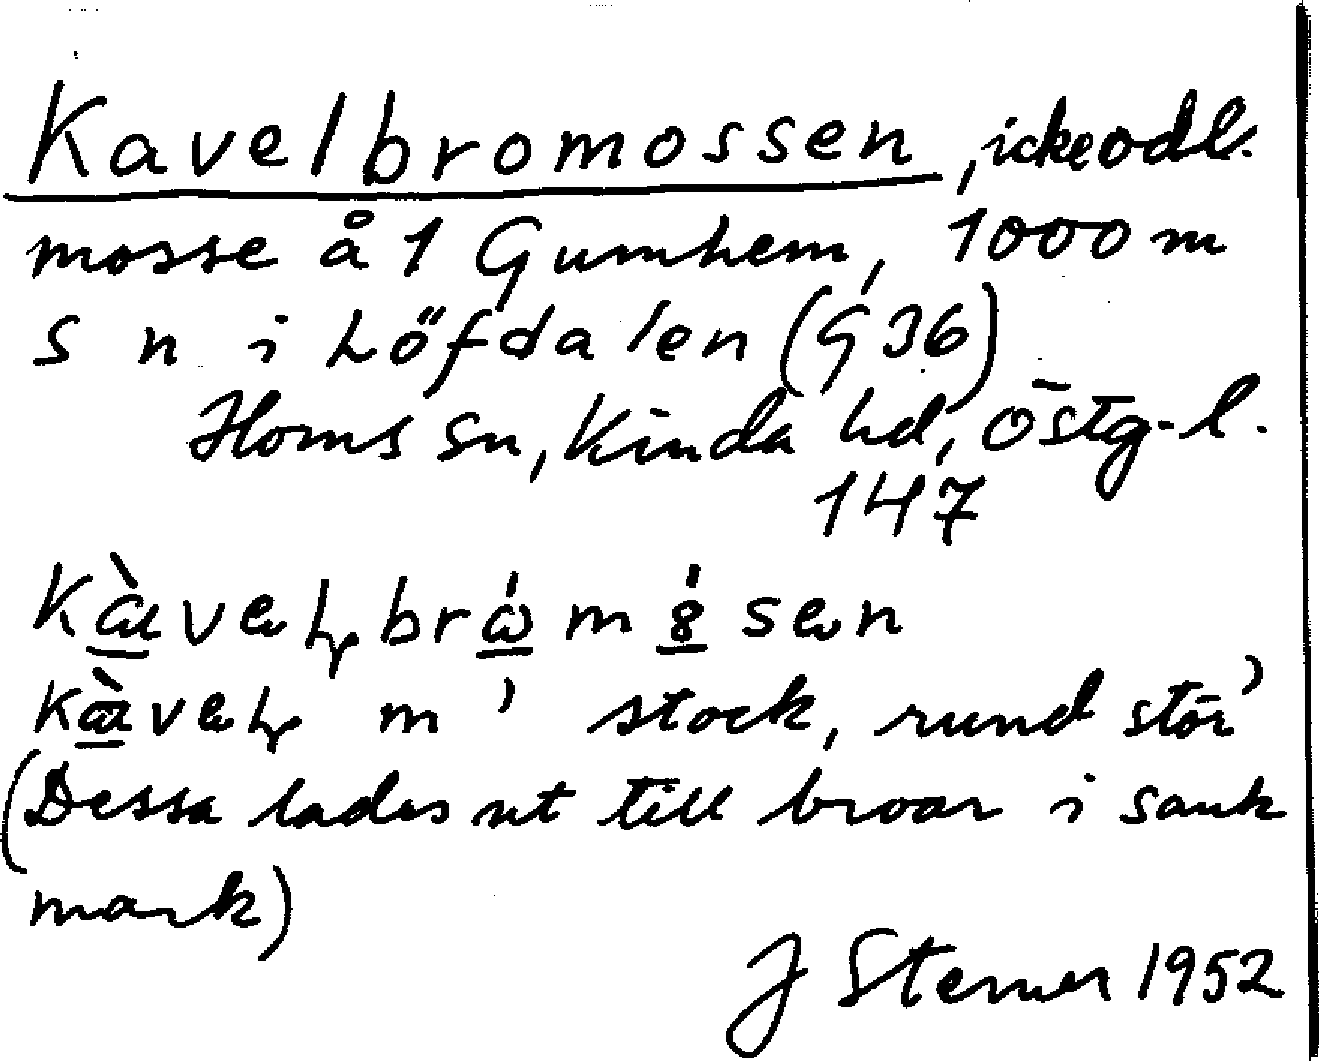 Kavelbromossen, ickeodl.
mosse å 1 Gumhem, 1000 m
S n i Löfdalen (G 36)
Horns sn, Kinda hd, Östg-l.
147
m ' stock, rund stör'
(Dessa lades ut till broar i sank
mark)
J Sterner 1952